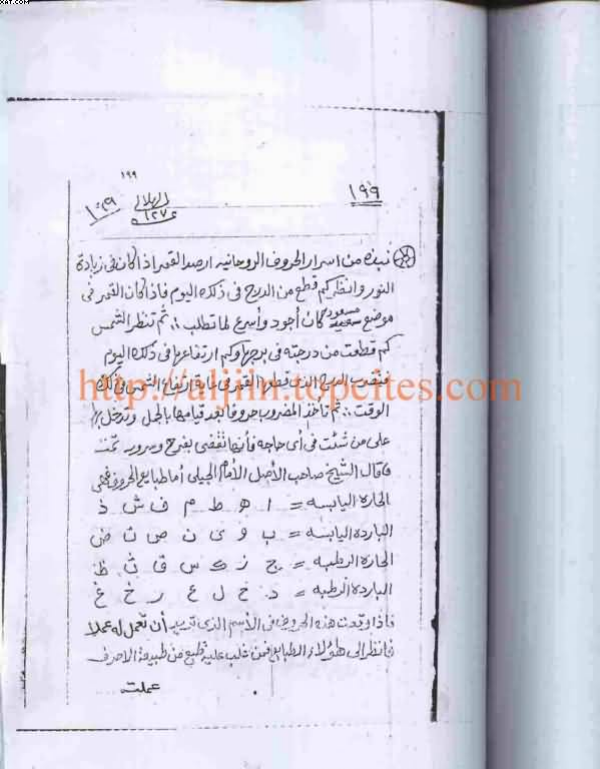 XAT.COM
١٩٩
١٩٩
الهلالي
١٢٧
نبذه من اسرار الحروف الروحانيه ارصد القمر اذا كان فى زيادة
النور وانظر كم قطع من الدرج فى ذلك اليوم فاذا كان القمر فى
موضع سعيد مسعود كان أجود وأسرع لما تطلب ثم تنظر الشمس
كم قطعت من درجته فى برجها وكم ارتفاعها فى ذلك اليوم
فتضرب الدرج الذى قطعه القمر فى ارتفاع الشمس فى ذلك
http://aljiin.topcites.com
الوقت ثم تأخذ المضروب حروفا بعد قيامها بالجمل وتدخل بها
على من شئت فى أى حاجه فأنها تقضى بفرح وسرور تمت
قال الشيخ صاحب الأصل الأمام الجيلى أما طبايع الحروف فهى
الحاره اليابسه = ا ه ط م ف ش ذ
البارده اليابسه = ب و ى ن ص ت ض
الحاره الرطبه = ج ز ك س ق ث ظ
البارده الرطبه = د ح ل ع ر خ غ
فاذا وقعت هذه الحروف فى الأسم الذى تريد أن تعمل له عملا
فانظر الى هؤلاء الطبايع فمن غلب عليه طبع من طبيعة الاحرف
عملت